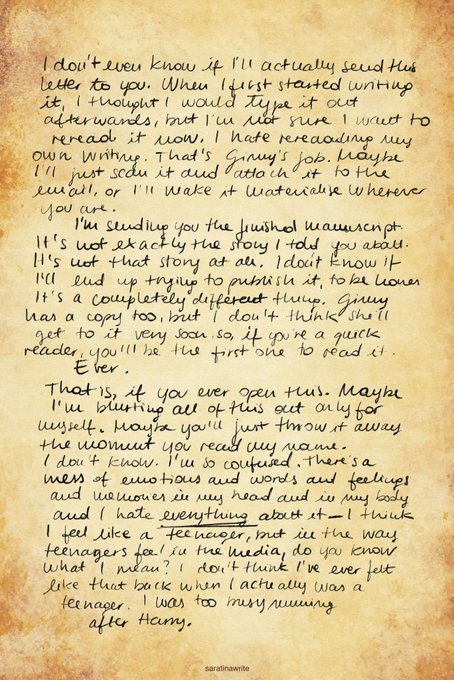 I don't even know if I'll actually send this
letter to you. When I first started writing
it, I thought I would type it out
afterwards, but I'm not sure I want to
reread it now. I hate rereading my
own writing. That's Ginny's job. Maybe
I'll just scan it and attach it to the
email, or I'll make it materialise wherever
you are.
I'm sending you the finished manuscript.
It's not exactly the story I told you about.
It's not that story at all. I don't know if
I'll end up trying to publish it, to be honest
It's a completely different thing. Ginny
has a copy too, but I don't think she'll
get to it very soon, so, if you're a quick
reader, you'll be the first one to read it.
Ever.
That is, if you ever open this. Maybe
I'm blurting all of this out only for
myself. Maybe you'll just throw it away
the moment you read my name.
I don't know. I'm so confused. There's a
mess of emotions and words and feelings
and memories in my head and in my body
and I hate everything about it – I think
I feel like a teenager, but in the way
teenagers feel in the media, do you know
what I mean? I don't think I've ever felt
like that back when I actually was a
teenager. I was too busy running
after Harry.
saratinawrite